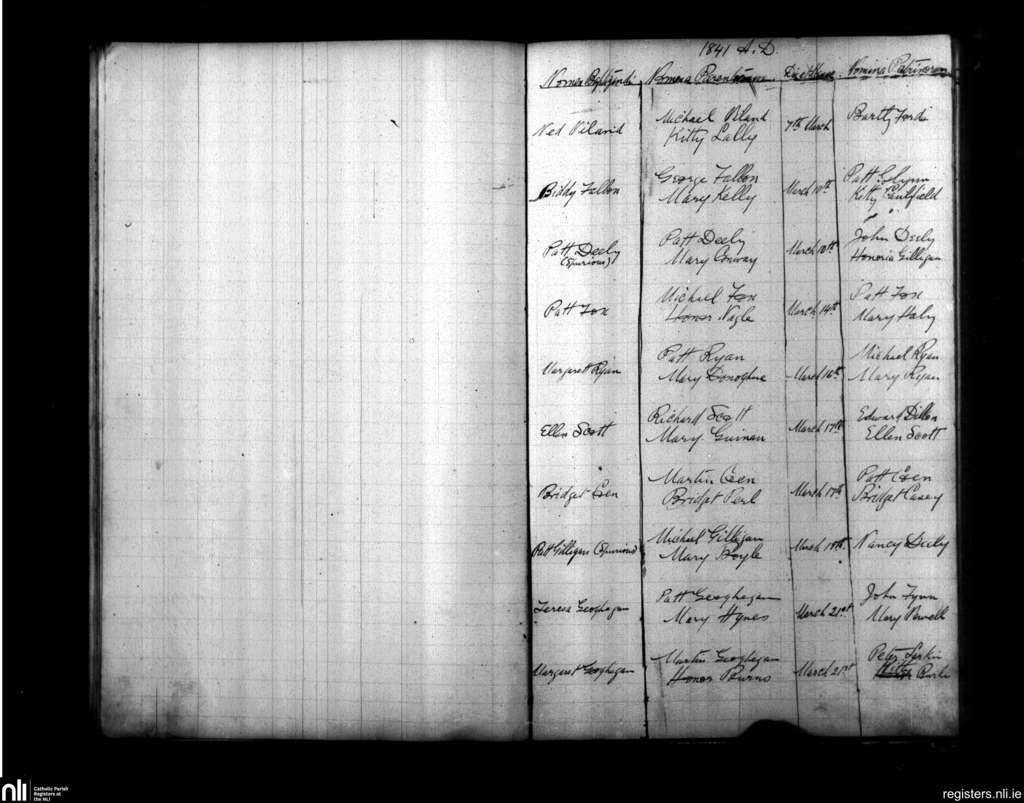 1841 A.D.
Nomen Baptizandi Nomena Parentum Die & Mense Nomina Patrinorum
Michael Viland Bartly Forde
Ned Viland 7th March
Kitty Lally
George Fallon Patt Glynn
Biddy Fallon March 10th
Mary Kelly Kitty Caulfield
Patt Deely John Deely
Patt Deely March 10th
(Spurious) Mary Conway Honoria Gilligan
Michael Fox Patt Fox
Patt Fox March 14th
Honor Nagle Mary Haly
Patt Ryan Michael Ryan
Margarett Ryan March 16th
Mary Donoghue Mary Ryan
Richard Scott Edward Dillon
Ellen Scott March 17th
Mary Guinan Ellen Scott
Martin Coen Patt Coen
Bridget Coen March 17th
Bridget Casey
Michael Gilligan
Patt Gilligan (Spurious) March Nancy Deely
Mary Boyle
Patt Geoghegan John Fynn
Teresa Geoghegan March 21st
Mary Hynes Mary Powell
Martin Geoghegan Peter Larkin
Margaret Geoghegan March 21st
Honor Burns Burke
nli
Catholic Parish
Registers at
the NLI
registers.nli.ie